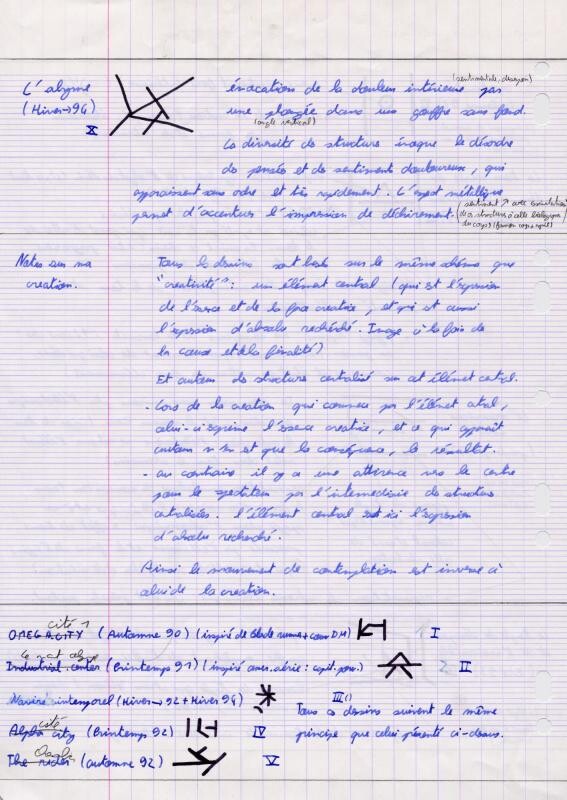 L'abyme
(Hiver → 94)
X
évocation de la douleur intérieure par (sentimentale,
une plongée dans un gouffre sans fond.
(angle vertical)
La diversité de structure évoque le désordre
de pensées et de sentiments douloureux, qui
apparaissent sans ordre et très rapidement. L'aspect métallique
permet d'accentuer l'impression de déchirement.
Notes sur ma
creation.
Tous les dessins sont basés sur le même schéma que
"creativité" : un élément central (qui est l'expression
de l'essence et de la force creatrice, et qui est aussi
l'expression d'absolu recherché. Image à la fois de
la cause et de la finalité)
Et autour des structures centralisées sur cet élément central.
- Lors de la creation qui commence par l'élément central,
celui-ci exprime l'essence creatrice, et ce qui apparaît
autour n'en est que la conséquence, le résultat.
- au contraire il y a une attirance vers le centre
pour le spectateur par l'intermédiaire des structures
centralisées. l'élément central est ici l'expression
d'absolu recherché.
Ainsi le mouvement de contemplation est inverse à
celui de la creation.
cité 1
OMEGA CITY (Automne 90) (inspiré de blade runner + DM) I
Industrial center (Printemps 91) (inspiré 2 II
Navire intemporel (Hiver → 92 + Hiver 94) III()
Tous ces dessins suivent le même
cité
Alpha city (Printemps 92) IV
principe que celui présenté ci-dessus.
The rider (automne 92) V